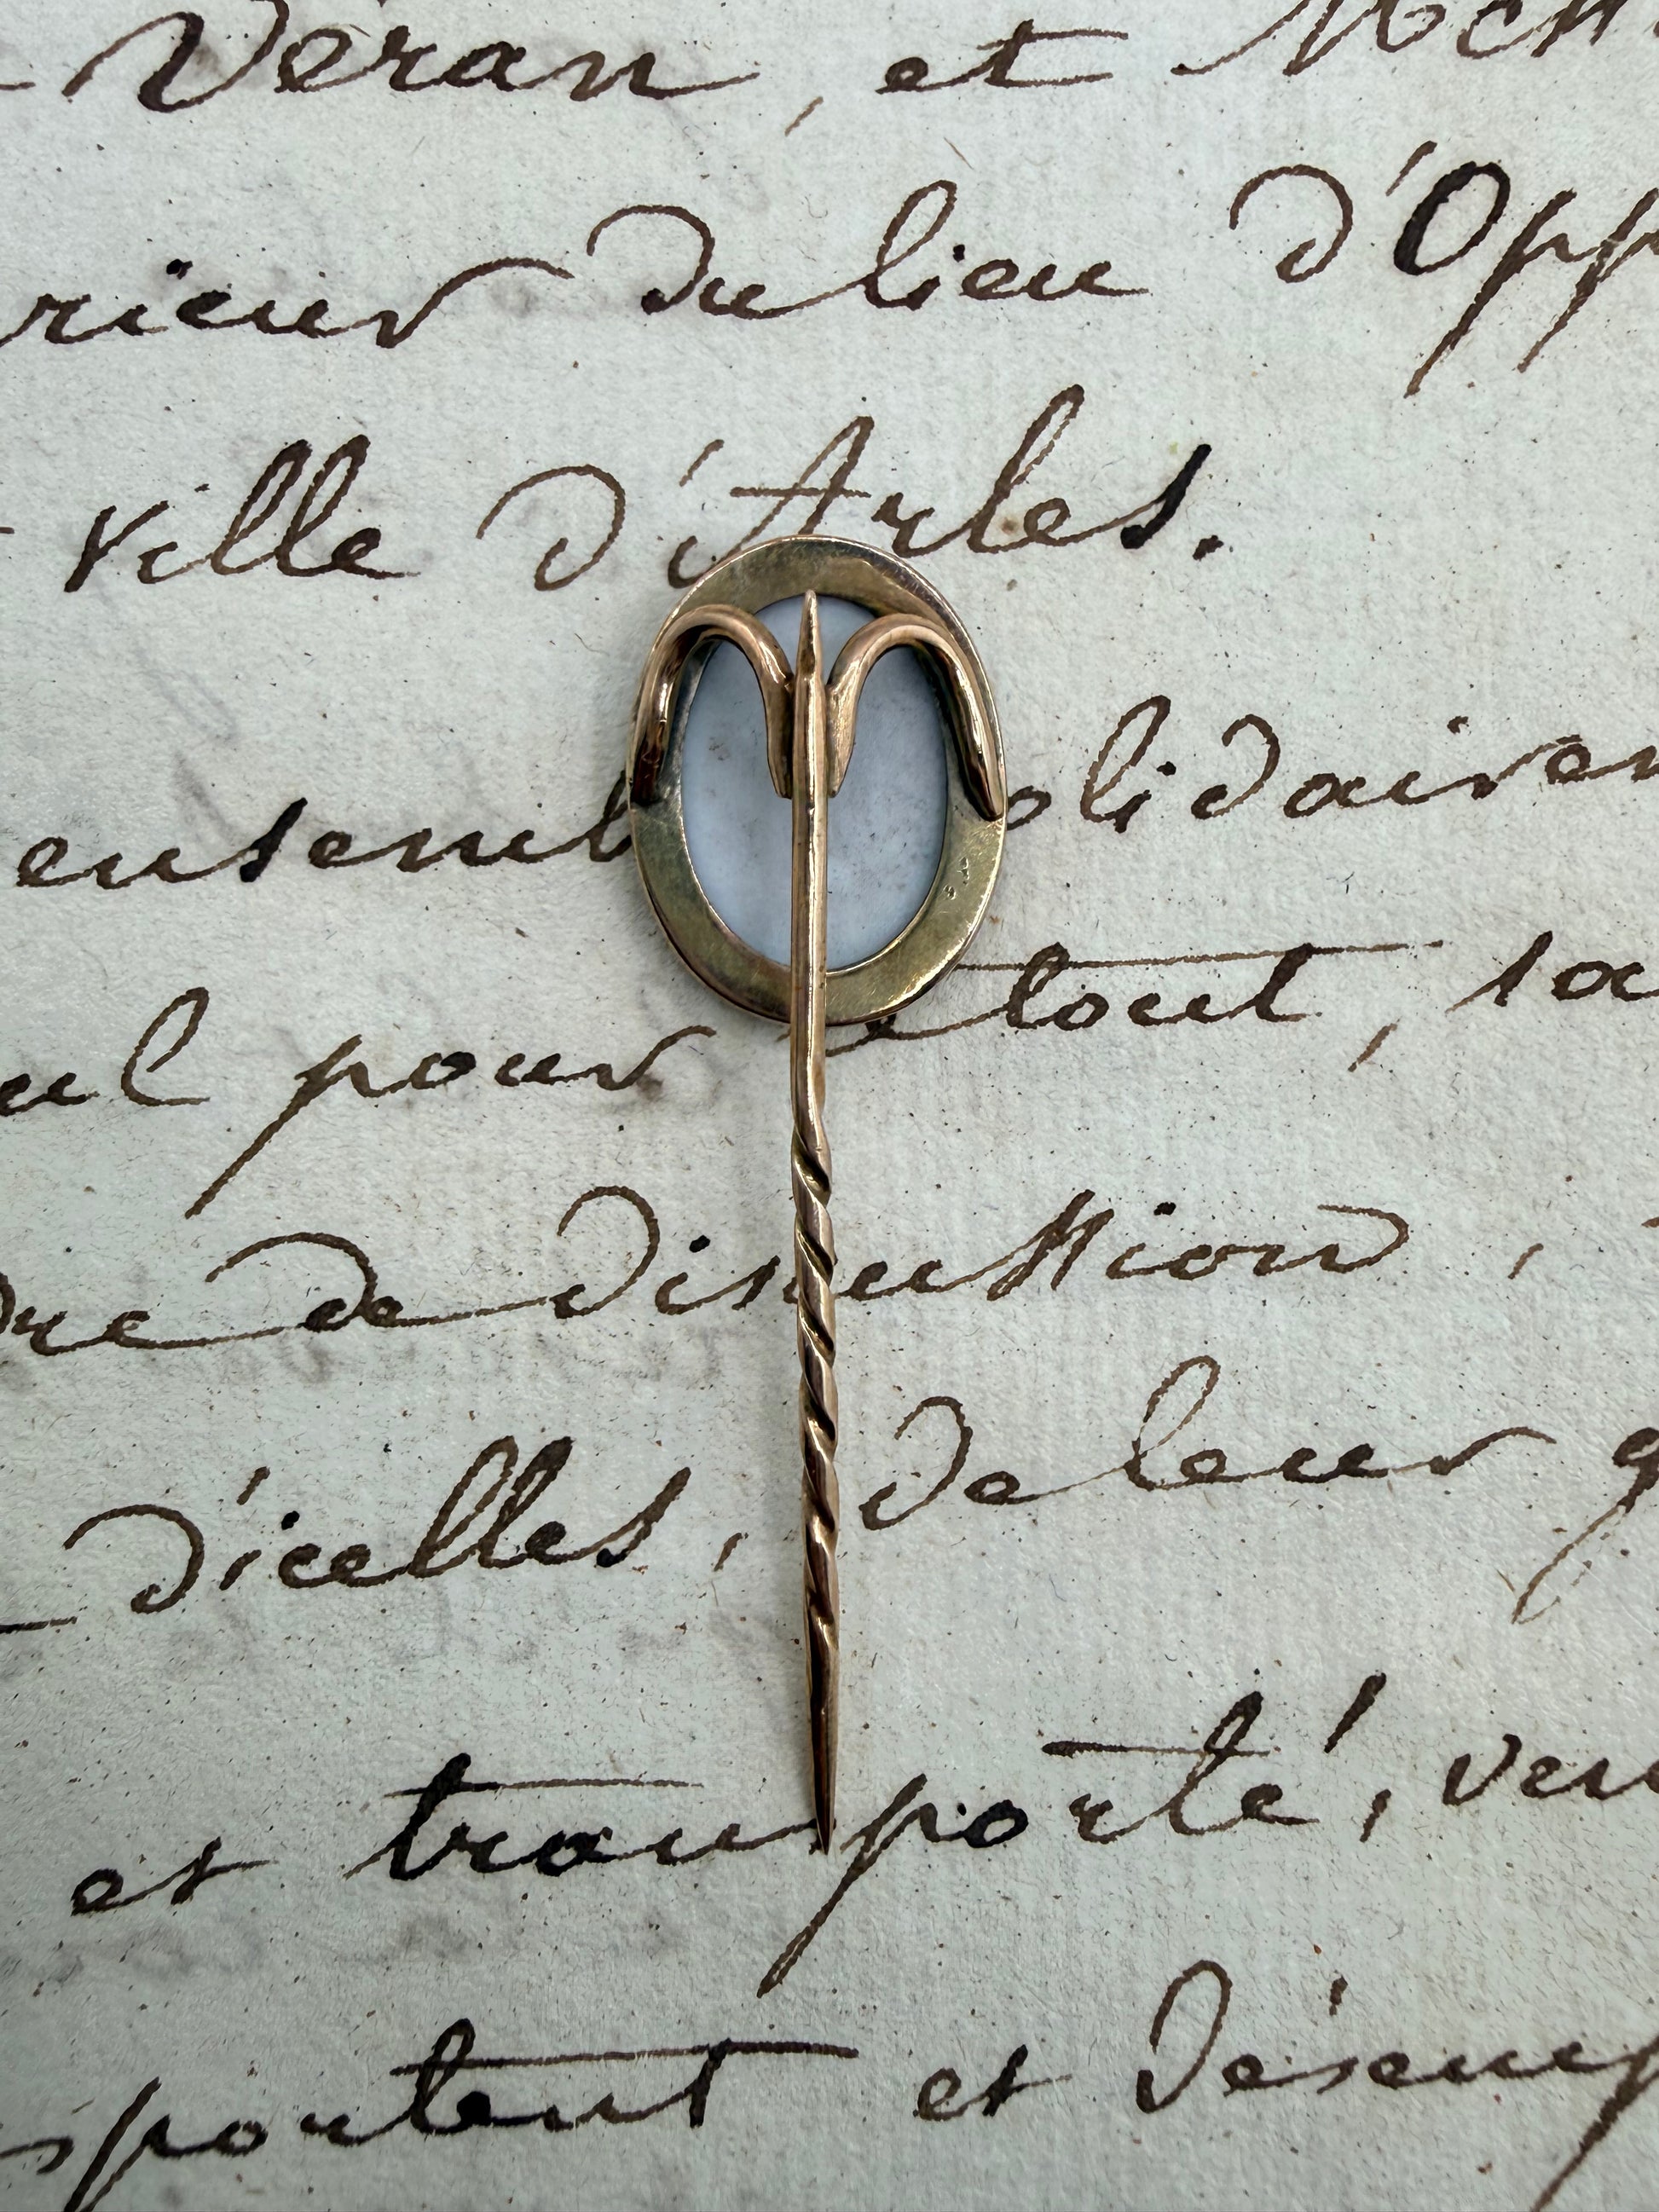 Véran, et
rieur du lieu d'Opp
ville d'Arles.
ensembl olidairem
ul pour le tout, sa
dre de discussion,
d'icelles, de leur q
et transporté, ven
sportent et désemp